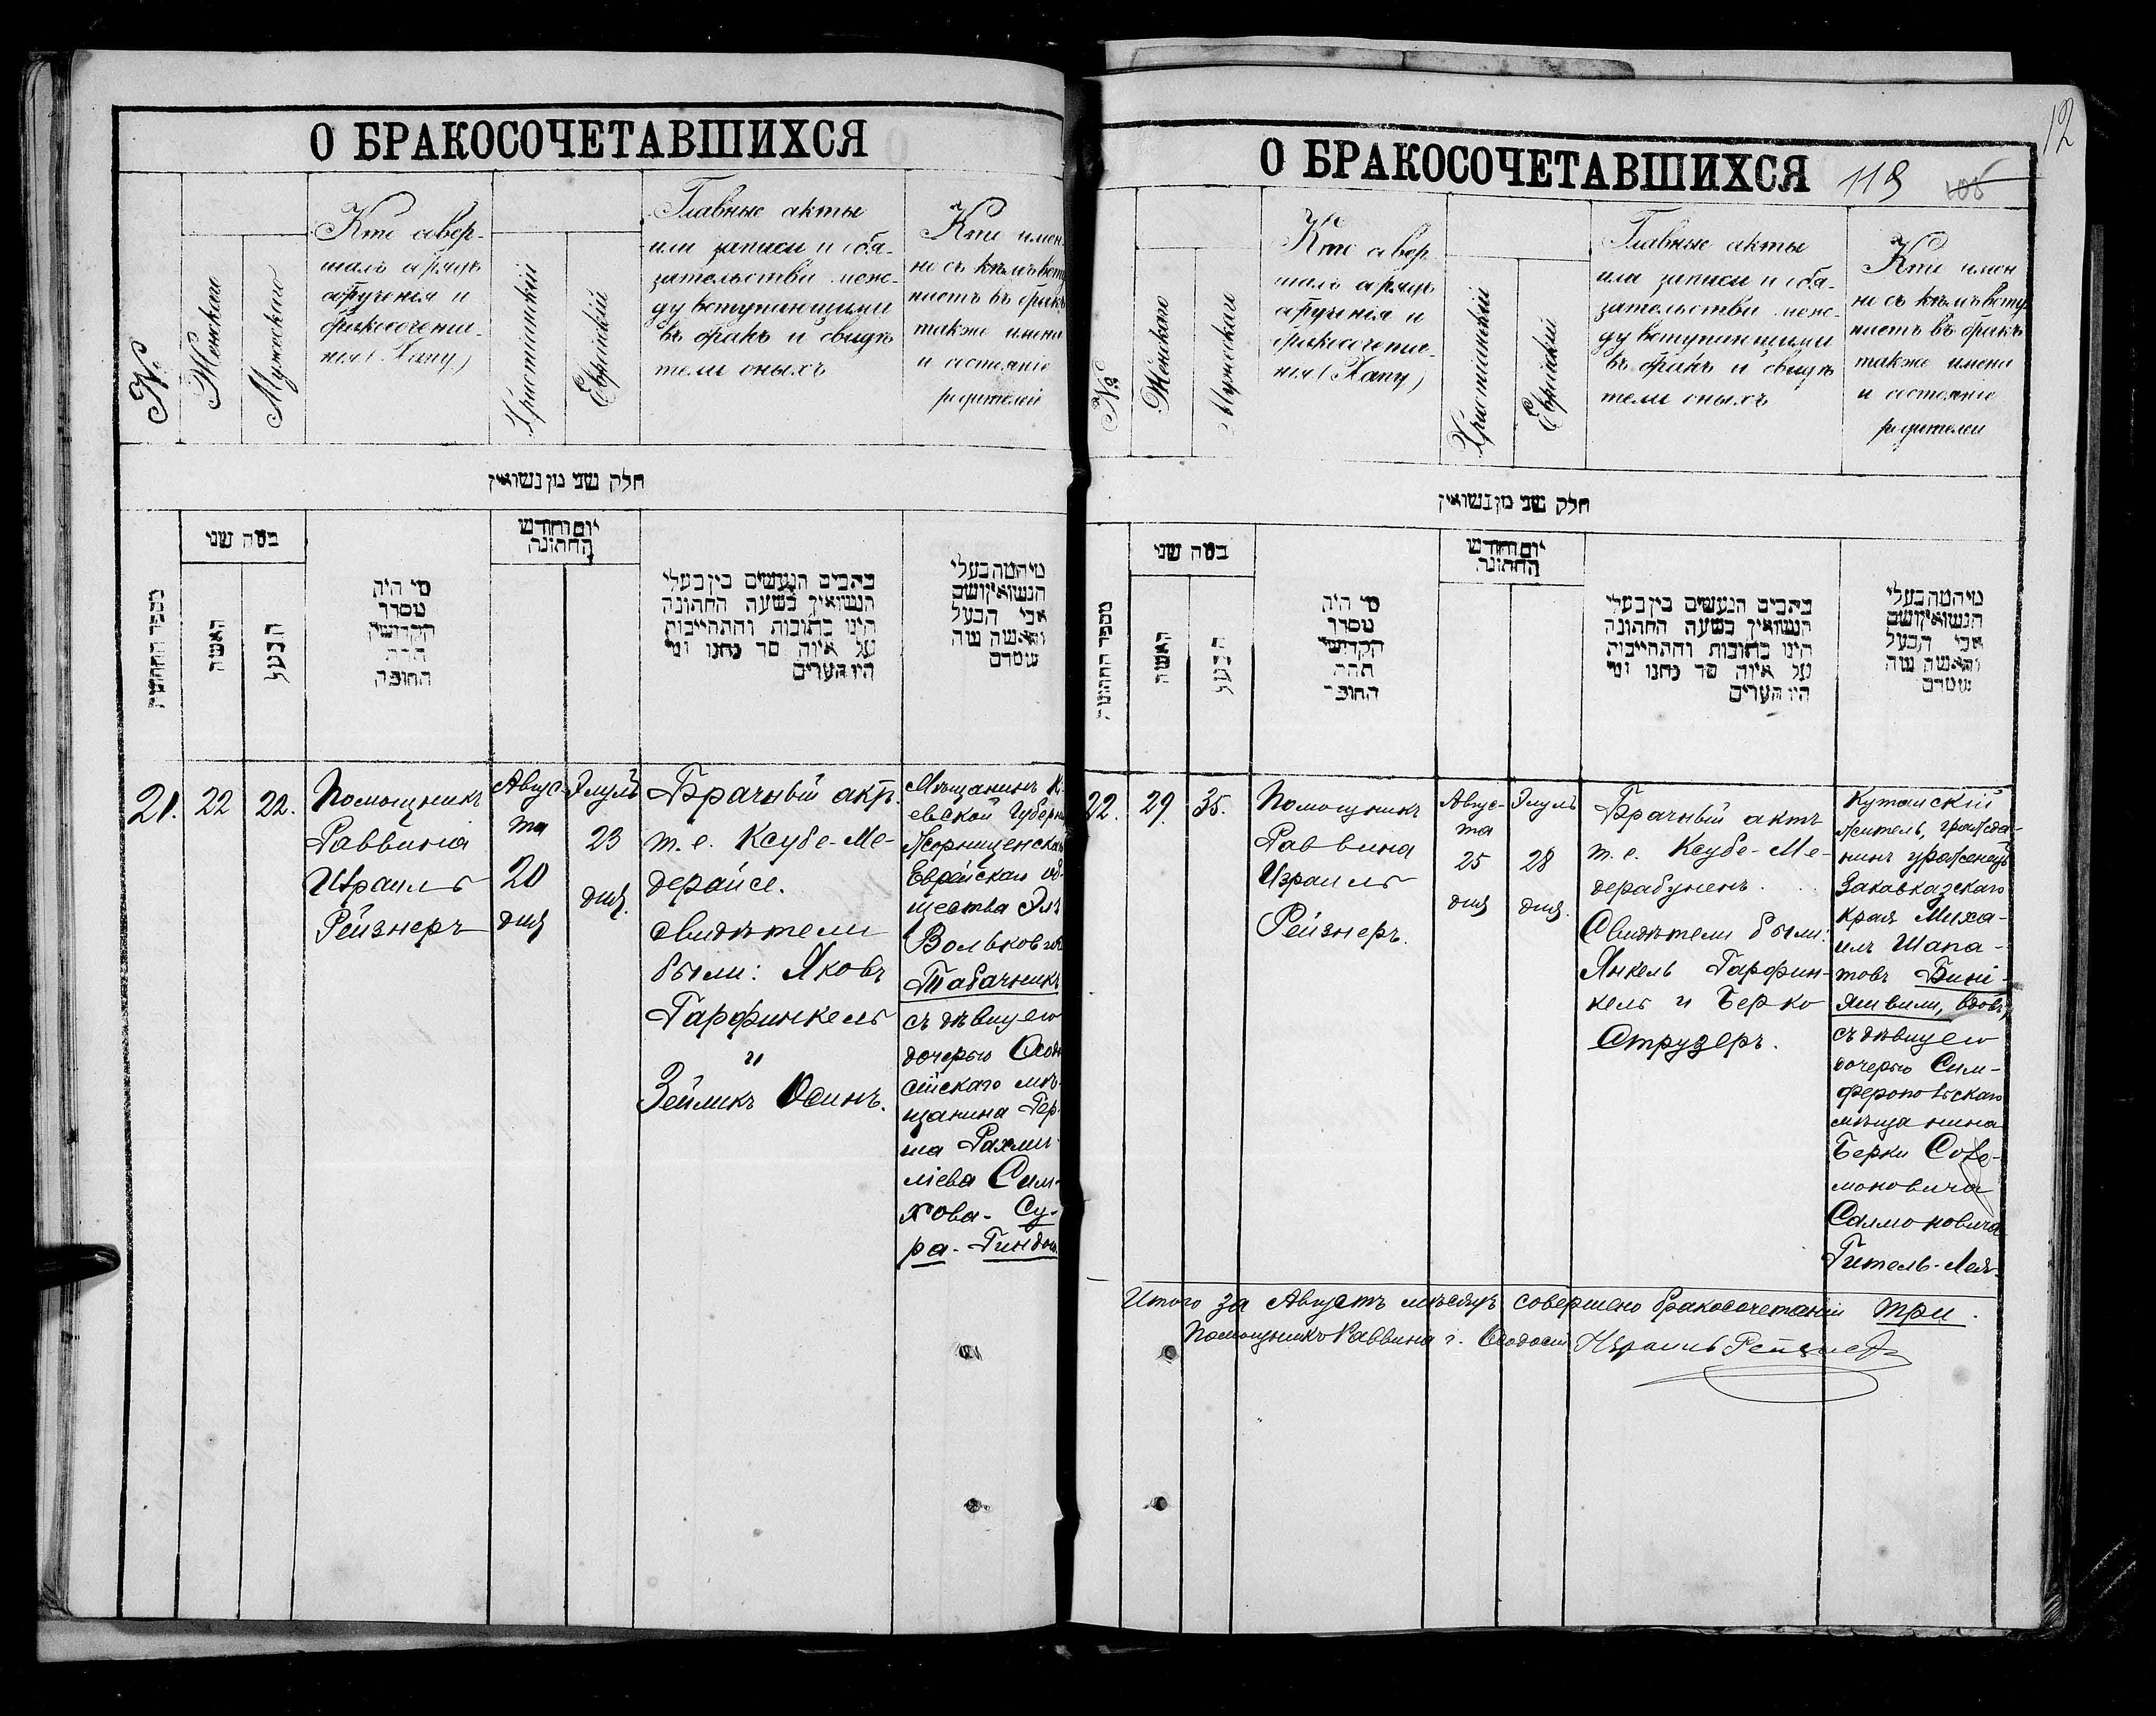 О БРАКОСОЧЕТАВШИХСЯ
№
Женскаго
Мужескаго
Кто совер-
шалъ обрядъ
обрученія и
бракосочета-
нія (Хапу)
Христіанскій
Еврейскій
Главные акты
или записи и обя-
зательства меж-
ду вступающими
въ бракъ и свидѣ
тели оныхъ
Кто имен
но съ кѣмъ всту
паетъ въ бракъ
также имена
и состояніе
родителей
חלק שני מן נשואין
מספר החתונות
כמה שני
האשה
הבעל
מי היה
מסדר
הקדושין
תחת
החופה
יום וחודש
החתונה
כתבים הנעשים בין בעלי
הנשואין בשעה החתונה
היינו כתובות והתחייבות
על איזה סך נתנו ומי
היו העדים
מי המה בעלי
הנשואין ושם
אבי הבעל
והאשה מה
שמדם
21.
22
22.
Помощникъ
Раввина
Израиль
Рейзнеръ
Авгус-
та
20
дня
Элулъ
23
дня.
Брачный актъ.
т. е. Ксубе-Ме-
дерайсе.
Свидѣтели
были: Яковъ
Гарфинкель
и
Зейликъ Осинъ.
Мѣщанинъ Кі
евской Губерніи
Еврейскаго об-
щества
Вольковъ
Табачникъ
съ дѣвицею
дочерью Ѳеодо
сійскаго мѣ-
щанина Гер-
ша Рахми-
ліева Сим-
хова- Су-
ра- Гиндою.
О БРАКОСОЧЕТАВШИХСЯ
119
12
№
Женскаго
Мужескаго
Кто совер
шалъ обрядъ
обрученія и
бракосочета-
нія (Хапу)
Христіанскій
Еврейскій
Главные акты
или записи и обя-
зательства меж-
ду вступающими
въ бракъ и свидѣ
тели оныхъ
Кто имен
но съ кѣмъ всту
паетъ въ бракъ
также имена
и состояніе
родителей
חלק שני מן נשואין
מספר החתונות
כמה שני
האשה
הבעל
מי היה
מסדר
הקדושין
תחת
החופה
יום וחודש
החתונה
כתבים הנעשים בין בעלי
הנשואין בשעה החתונה
היינו כתובות והתחייבות
על איזה סך נתנו ומי
היו העדים
מי המה בעלי
הנשואין ושם
אבי הבעל
והאשה מה
שמדם
22.
29.
35.
Помощникъ
Раввина
Израиль
Рейзнеръ.
Авгус-
та
25
дня
Элулъ
28
дня.
Брачный актъ
т. е. Ксубе-Ме-
дерабуненъ.
Свидѣтели были:
Янкель Гарфин-
кель и Берко
Струзеръ.
Кутаискій
житель, гражда-
нинъ уроженецъ
Закавказскаго
края Миха-
илъ Шапа-
товъ Бині-
яшвили, вдовъ,
съ дѣвицею
дочерью Сим-
феропольскаго
мѣщанина
Берки Соло-
моновича
Салмоновича
Гитель-Лея.
Итого за Августъ мѣсяцъ совершено бракосочетаній три.
Помощникъ Раввина г. Ѳеодосіи Израиль Рейзнеръ